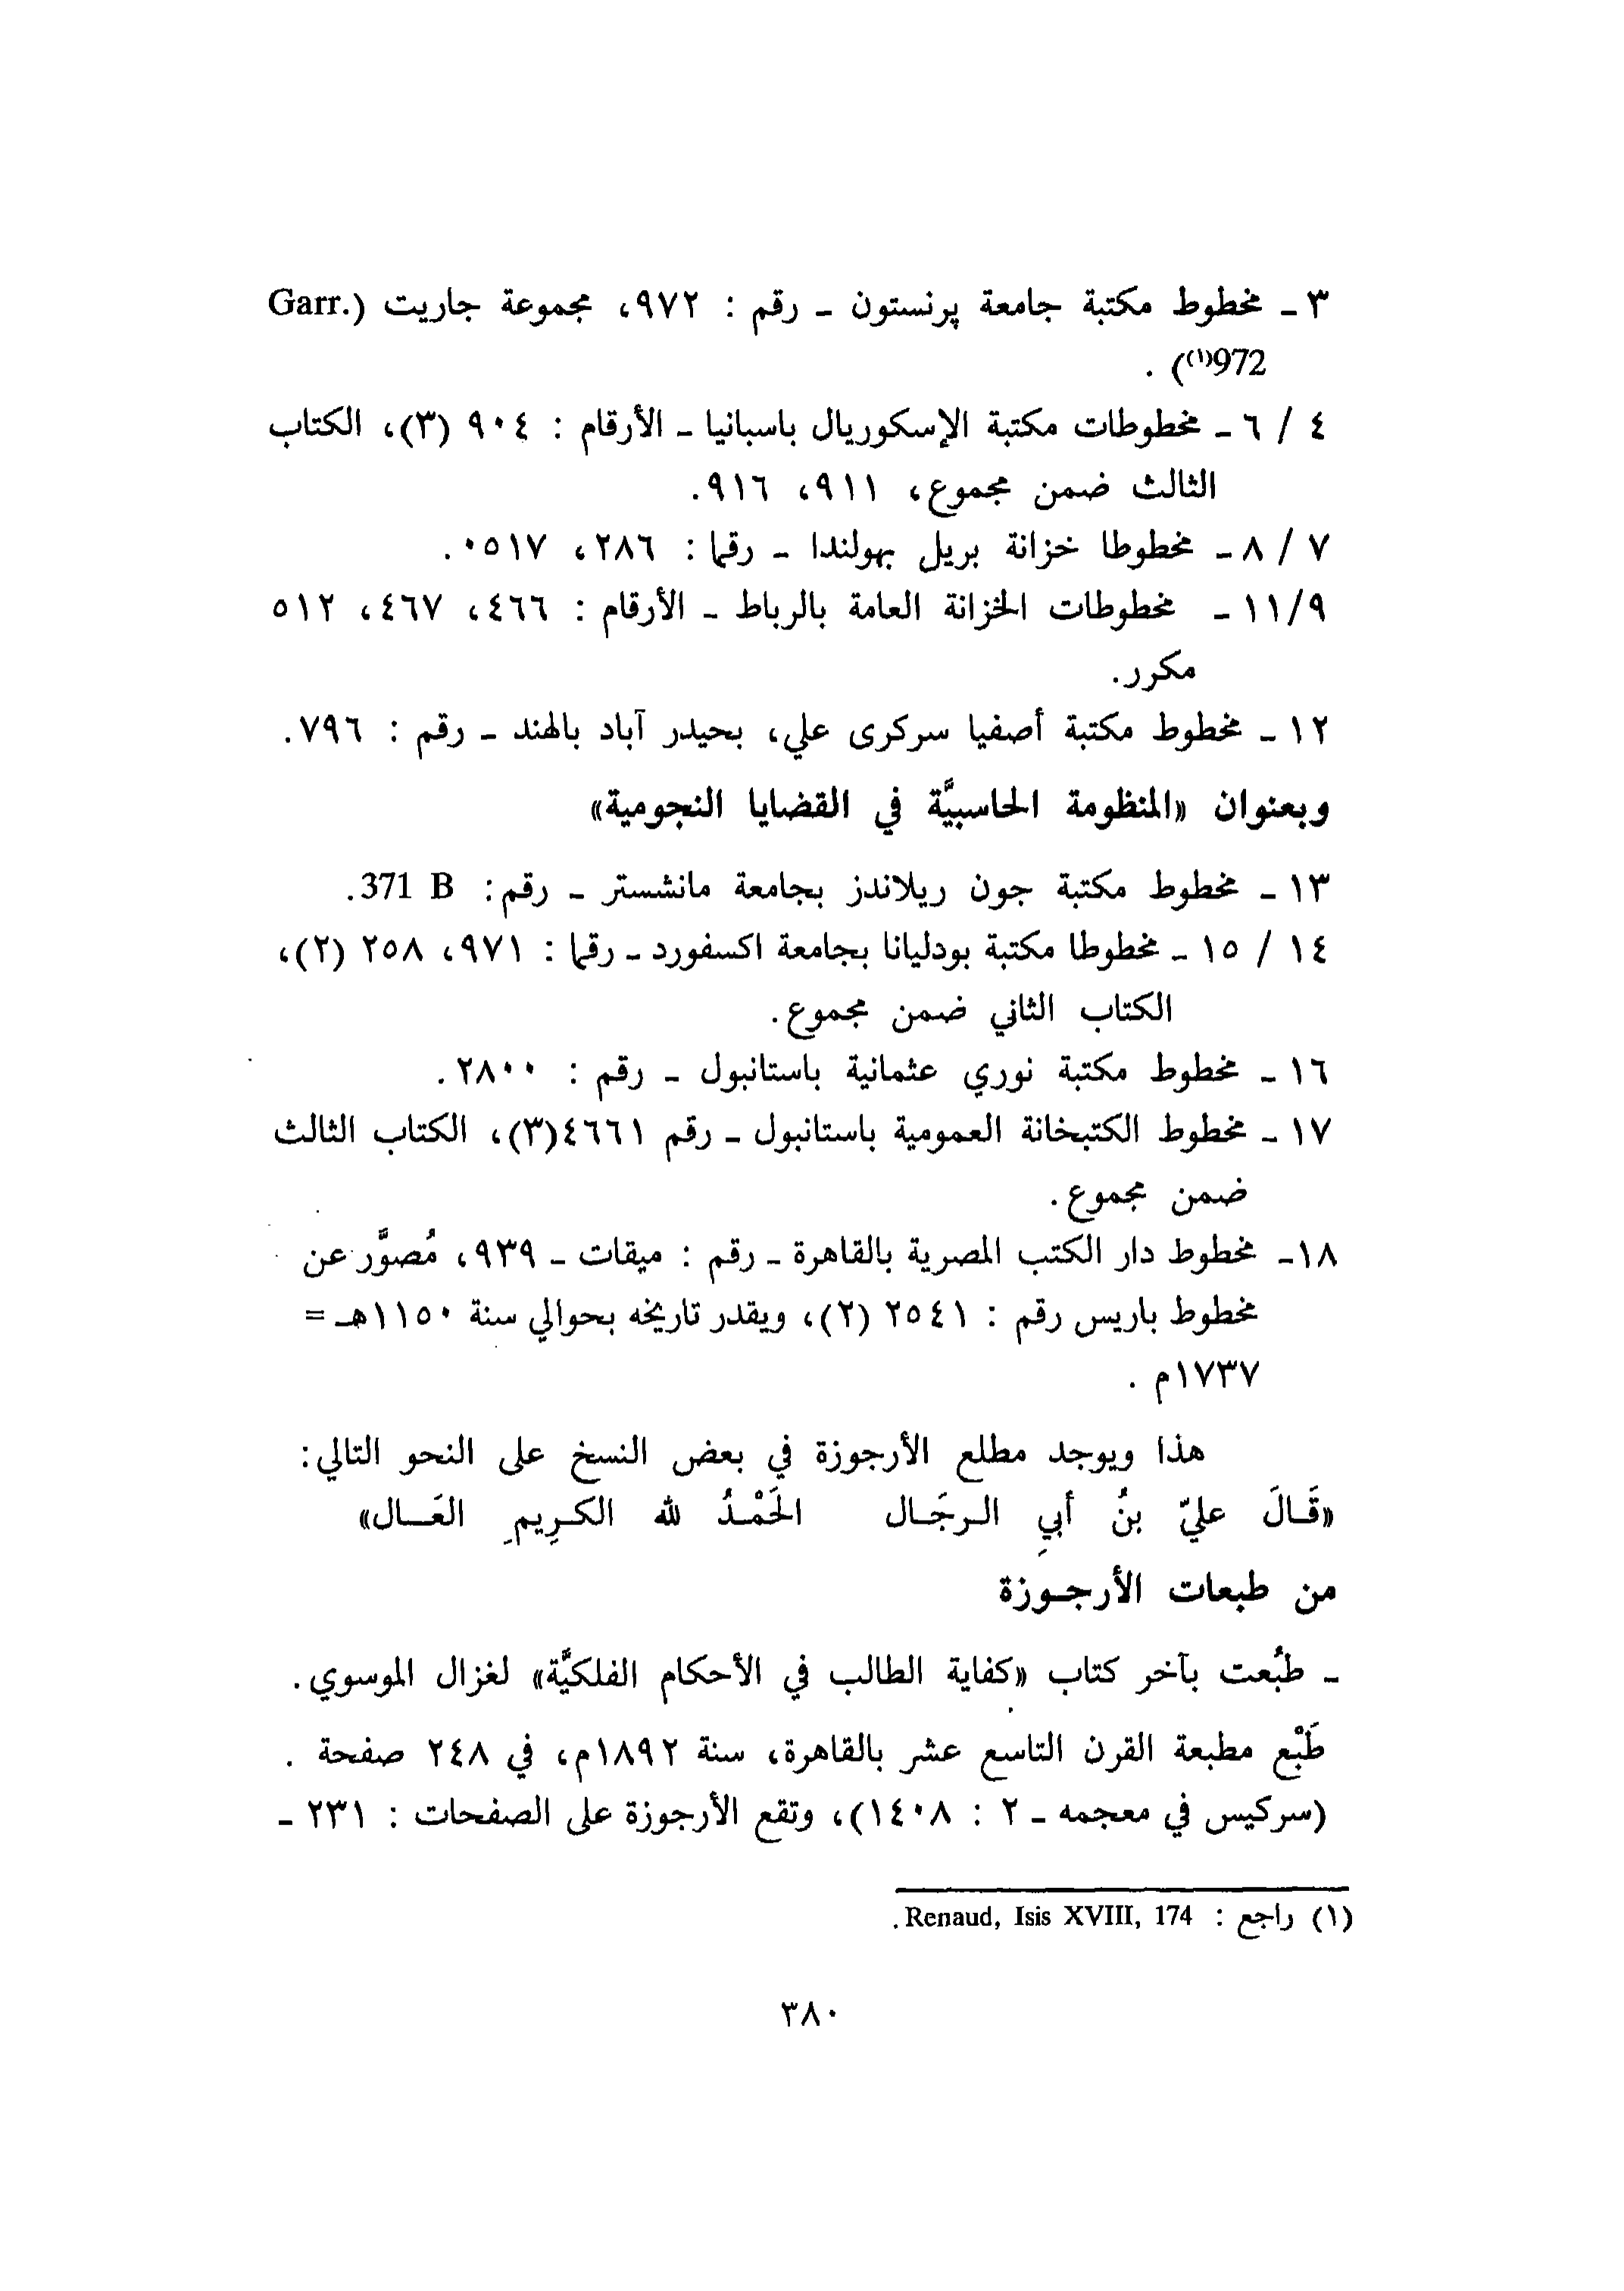 ٣ - مخطوط مكتبة جامعة پرنستون - رقم : ٩٧٢، مجموعة جاريت (Garr.
972⁽¹⁾) .
٤ / ٦ - مخطوطات مكتبة الإسكوريال باسبانيا - الأرقام : ٩٠٤ (٣)، الكتاب
الثالث ضمن مجموع، ٩١١، ٩١٦.
٧ / ٨ - مخطوطا خزانة بريل بهولندا - رقما : ٢٨٦، ٥١٧٠.
١١/٩ - مخطوطات الخزانة العامة بالرباط - الأرقام : ٤٦٦، ٤٦٧، ٥١٢
مكرر.
١٢ - مخطوط مكتبة أصفيا سركرى علي، بحيدر آباد بالهند - رقم : ٧٩٦.
وبعنوان «المنظومة الحاسبيَّة في القضايا النجومية»
١٣ - مخطوط مكتبة جون ريلاندز بجامعة مانشستر - رقم: 371 B.
١٤ / ١٥ - مخطوطا مكتبة بودليانا بجامعة اكسفورد - رقما : ٩٧١، ٢٥٨ (٢)،
الكتاب الثاني ضمن مجموع.
١٦ - مخطوط مكتبة نوري عثمانية باستانبول - رقم : ٢٨٠٠.
١٧ - مخطوط الكتبخانة العمومية باستانبول - رقم ٤٦٦١(٣)، الكتاب الثالث
ضمن مجموع.
١٨- مخطوط دار الكتب المصرية بالقاهرة - رقم : ميقات - ٩٣٩، مُصوَّر عن
مخطوط باريس رقم : ٢٥٤١ (٢)، ويقدر تاريخه بحوالي سنة ١١٥٠هـ =
١٧٣٧م .
هذا ويوجد مطلع الأرجوزة في بعض النسخ على النحو التالي:
«قَـالَ عليّ بنُ أبي الـرجَـال الحَمْـدُ لله الكـرِيمِ العَـال»
من طبعات الأرجـوزة
- طبُعت بآخر كتاب «كفاية الطالب في الأحكام الفلكيَّة» لغزال الموسوي.
طَبْع مطبعة القرن التاسع عشر بالقاهرة، سنة ١٨٩٢م، في ٢٤٨ صفحة .
(سركيس في معجمه - ٢ : ١٤٠٨)، وتقع الأرجوزة على الصفحات : ٢٣١ -
(١) راجع : Renaud, Isis XVIII, 174.
٣٨٠